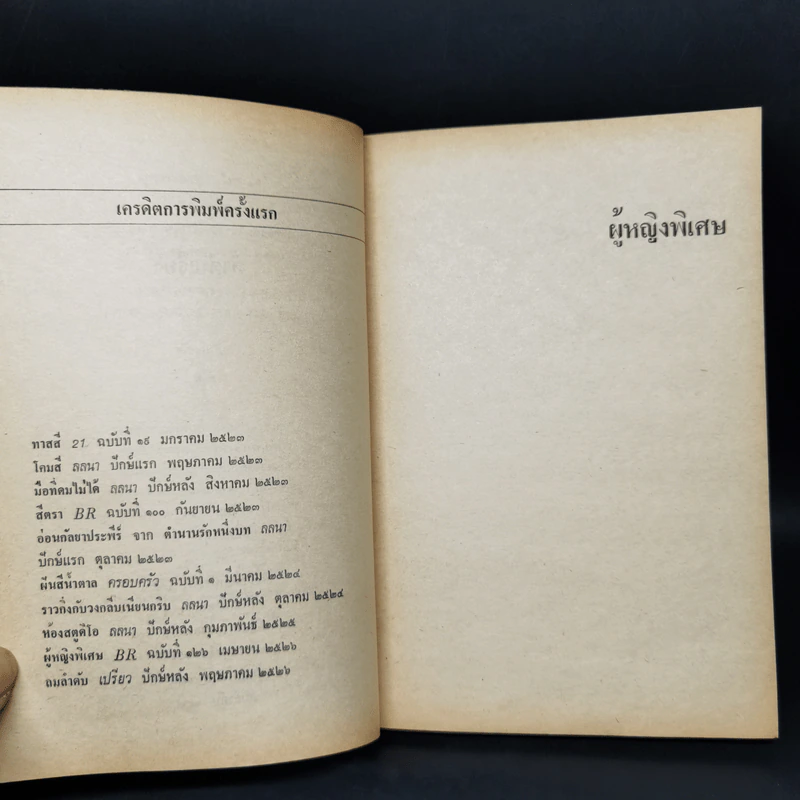 เครดิตการพิมพ์ครั้งแรก
ทาสสี 21 ฉบับที่ ๑๙ มกราคม ๒๕๒๓
โคมสี ลลนา ปักษ์แรก พฤษภาคม ๒๕๒๓
มือที่คมไม่ได้ ลลนา ปักษ์หลัง สิงหาคม ๒๕๒๓
สีตรา BR ฉบับที่ ๑๐๐ กันยายน ๒๕๒๓
อ่อนกัลยาประพีร์ จาก ตำนานรักหนึ่งบท ลลนา
ปักษ์แรก ตุลาคม ๒๕๒๓
ผืนสีน้ำตาล ครอบครัว ฉบับที่ ๑ มีนาคม ๒๕๒๔
ราวกิ่งกับวงกลีบเนียนกริบ ลลนา ปักษ์หลัง ตุลาคม ๒๕๒๔
ห้องสตูดิโอ ลลนา ปักษ์หลัง กุมภาพันธ์ ๒๕๒๕
ผู้หญิงพิเศษ BR ฉบับที่ ๑๒๖ เมษายน ๒๕๒๖
ลมลำดับ เปรียว ปักษ์หลัง พฤษภาคม ๒๕๒๖
ผู้หญิงพิเศษ